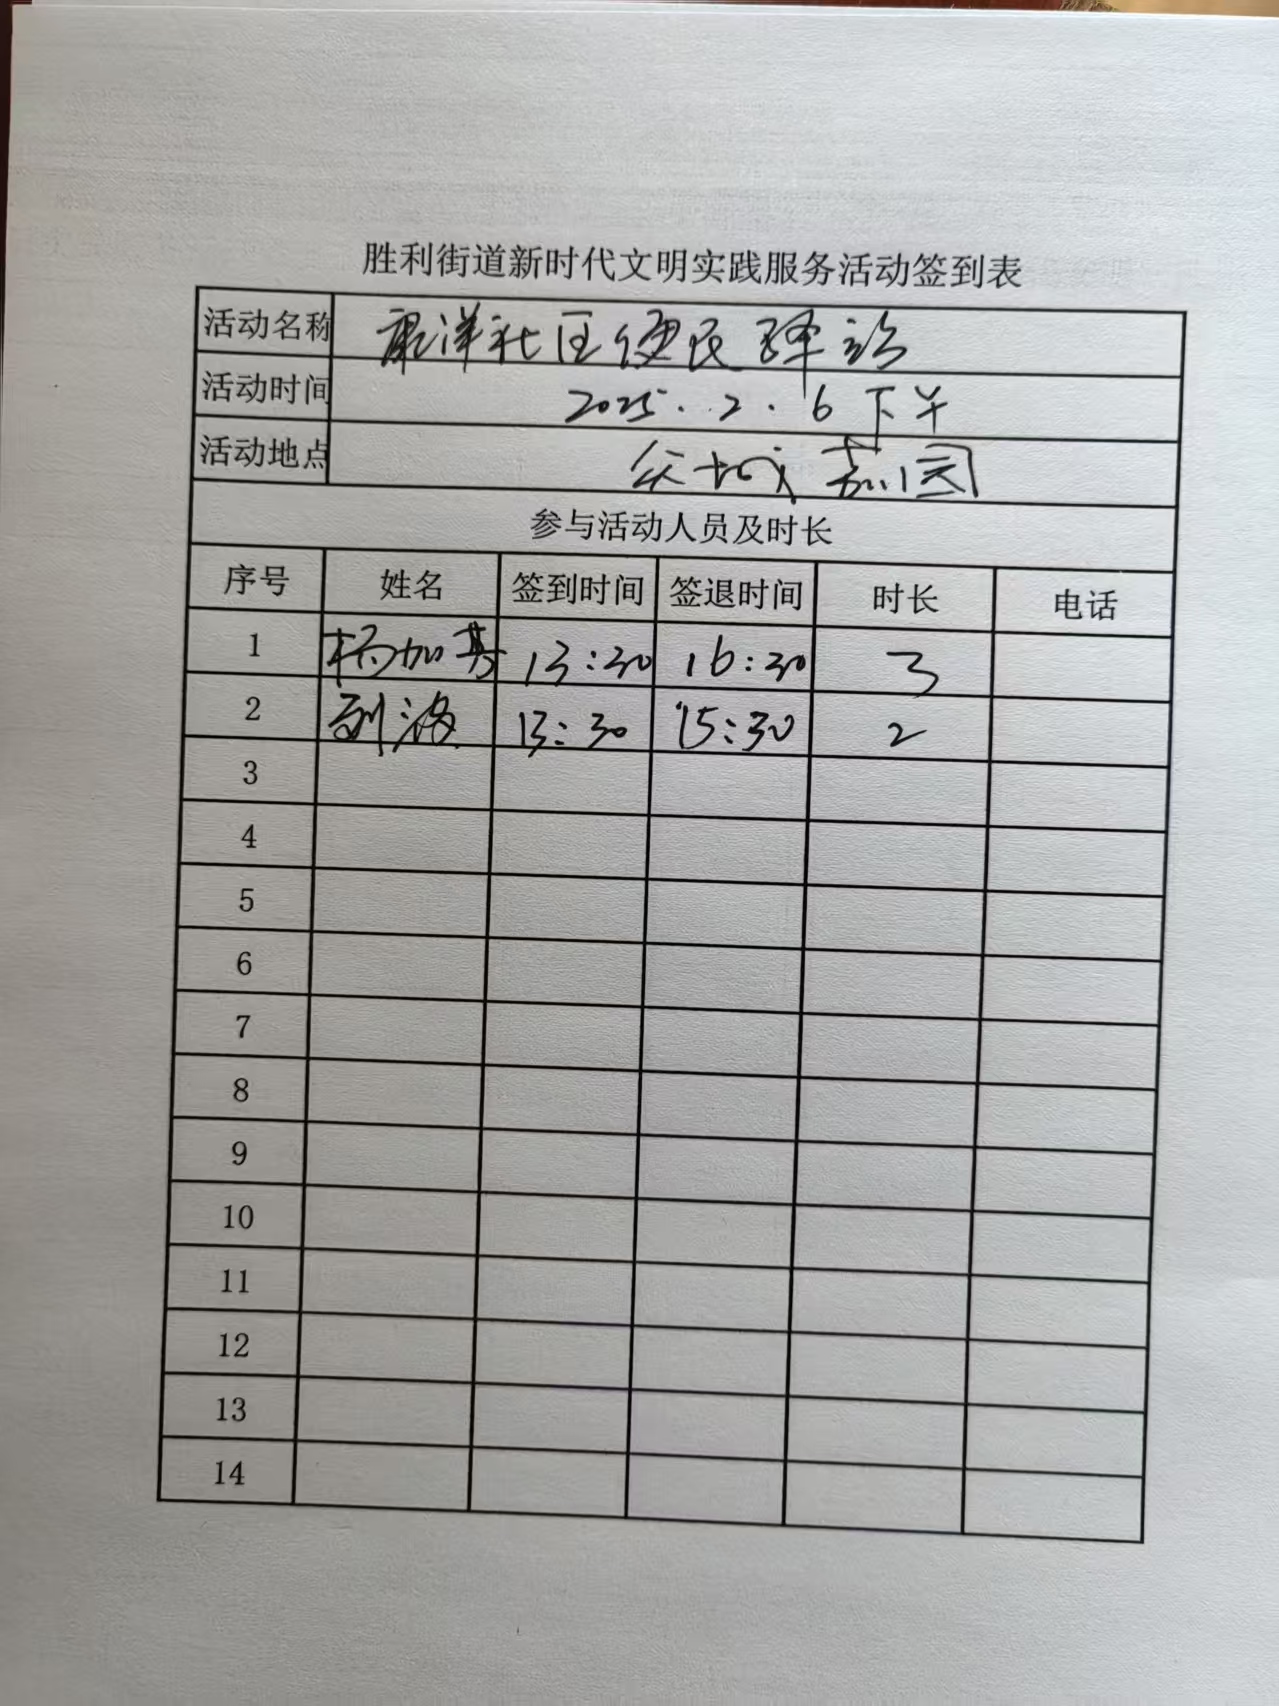 胜利街道新时代文明实践服务活动签到表
活动名称 康洋社区便民驿站
活动时间 2025.2.6下午
活动地点 城嘉园
参与活动人员及时长
序号 姓名 签到时间 签退时间 时长 电话
1 杨加其 13:30 16:30 3
2 刘波 13:30 15:30 2
3
4
5
6
7
8
9
10
11
12
13
14